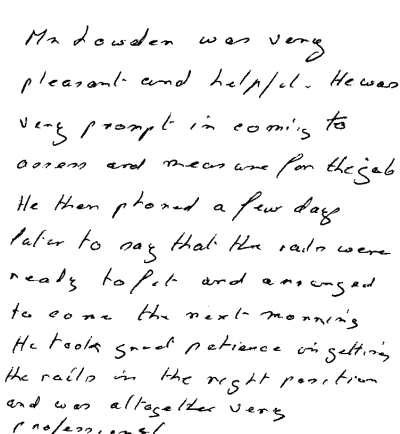 Mr Lowden was very
pleasant and helpful. He was
very prompt in coming to
assess and measure for the job
He then phoned a few days
later to say that the rails were
ready to fit and arranged
to come the next morning
He took great patience in getting
the rails in the right position
and was altogether very
professional